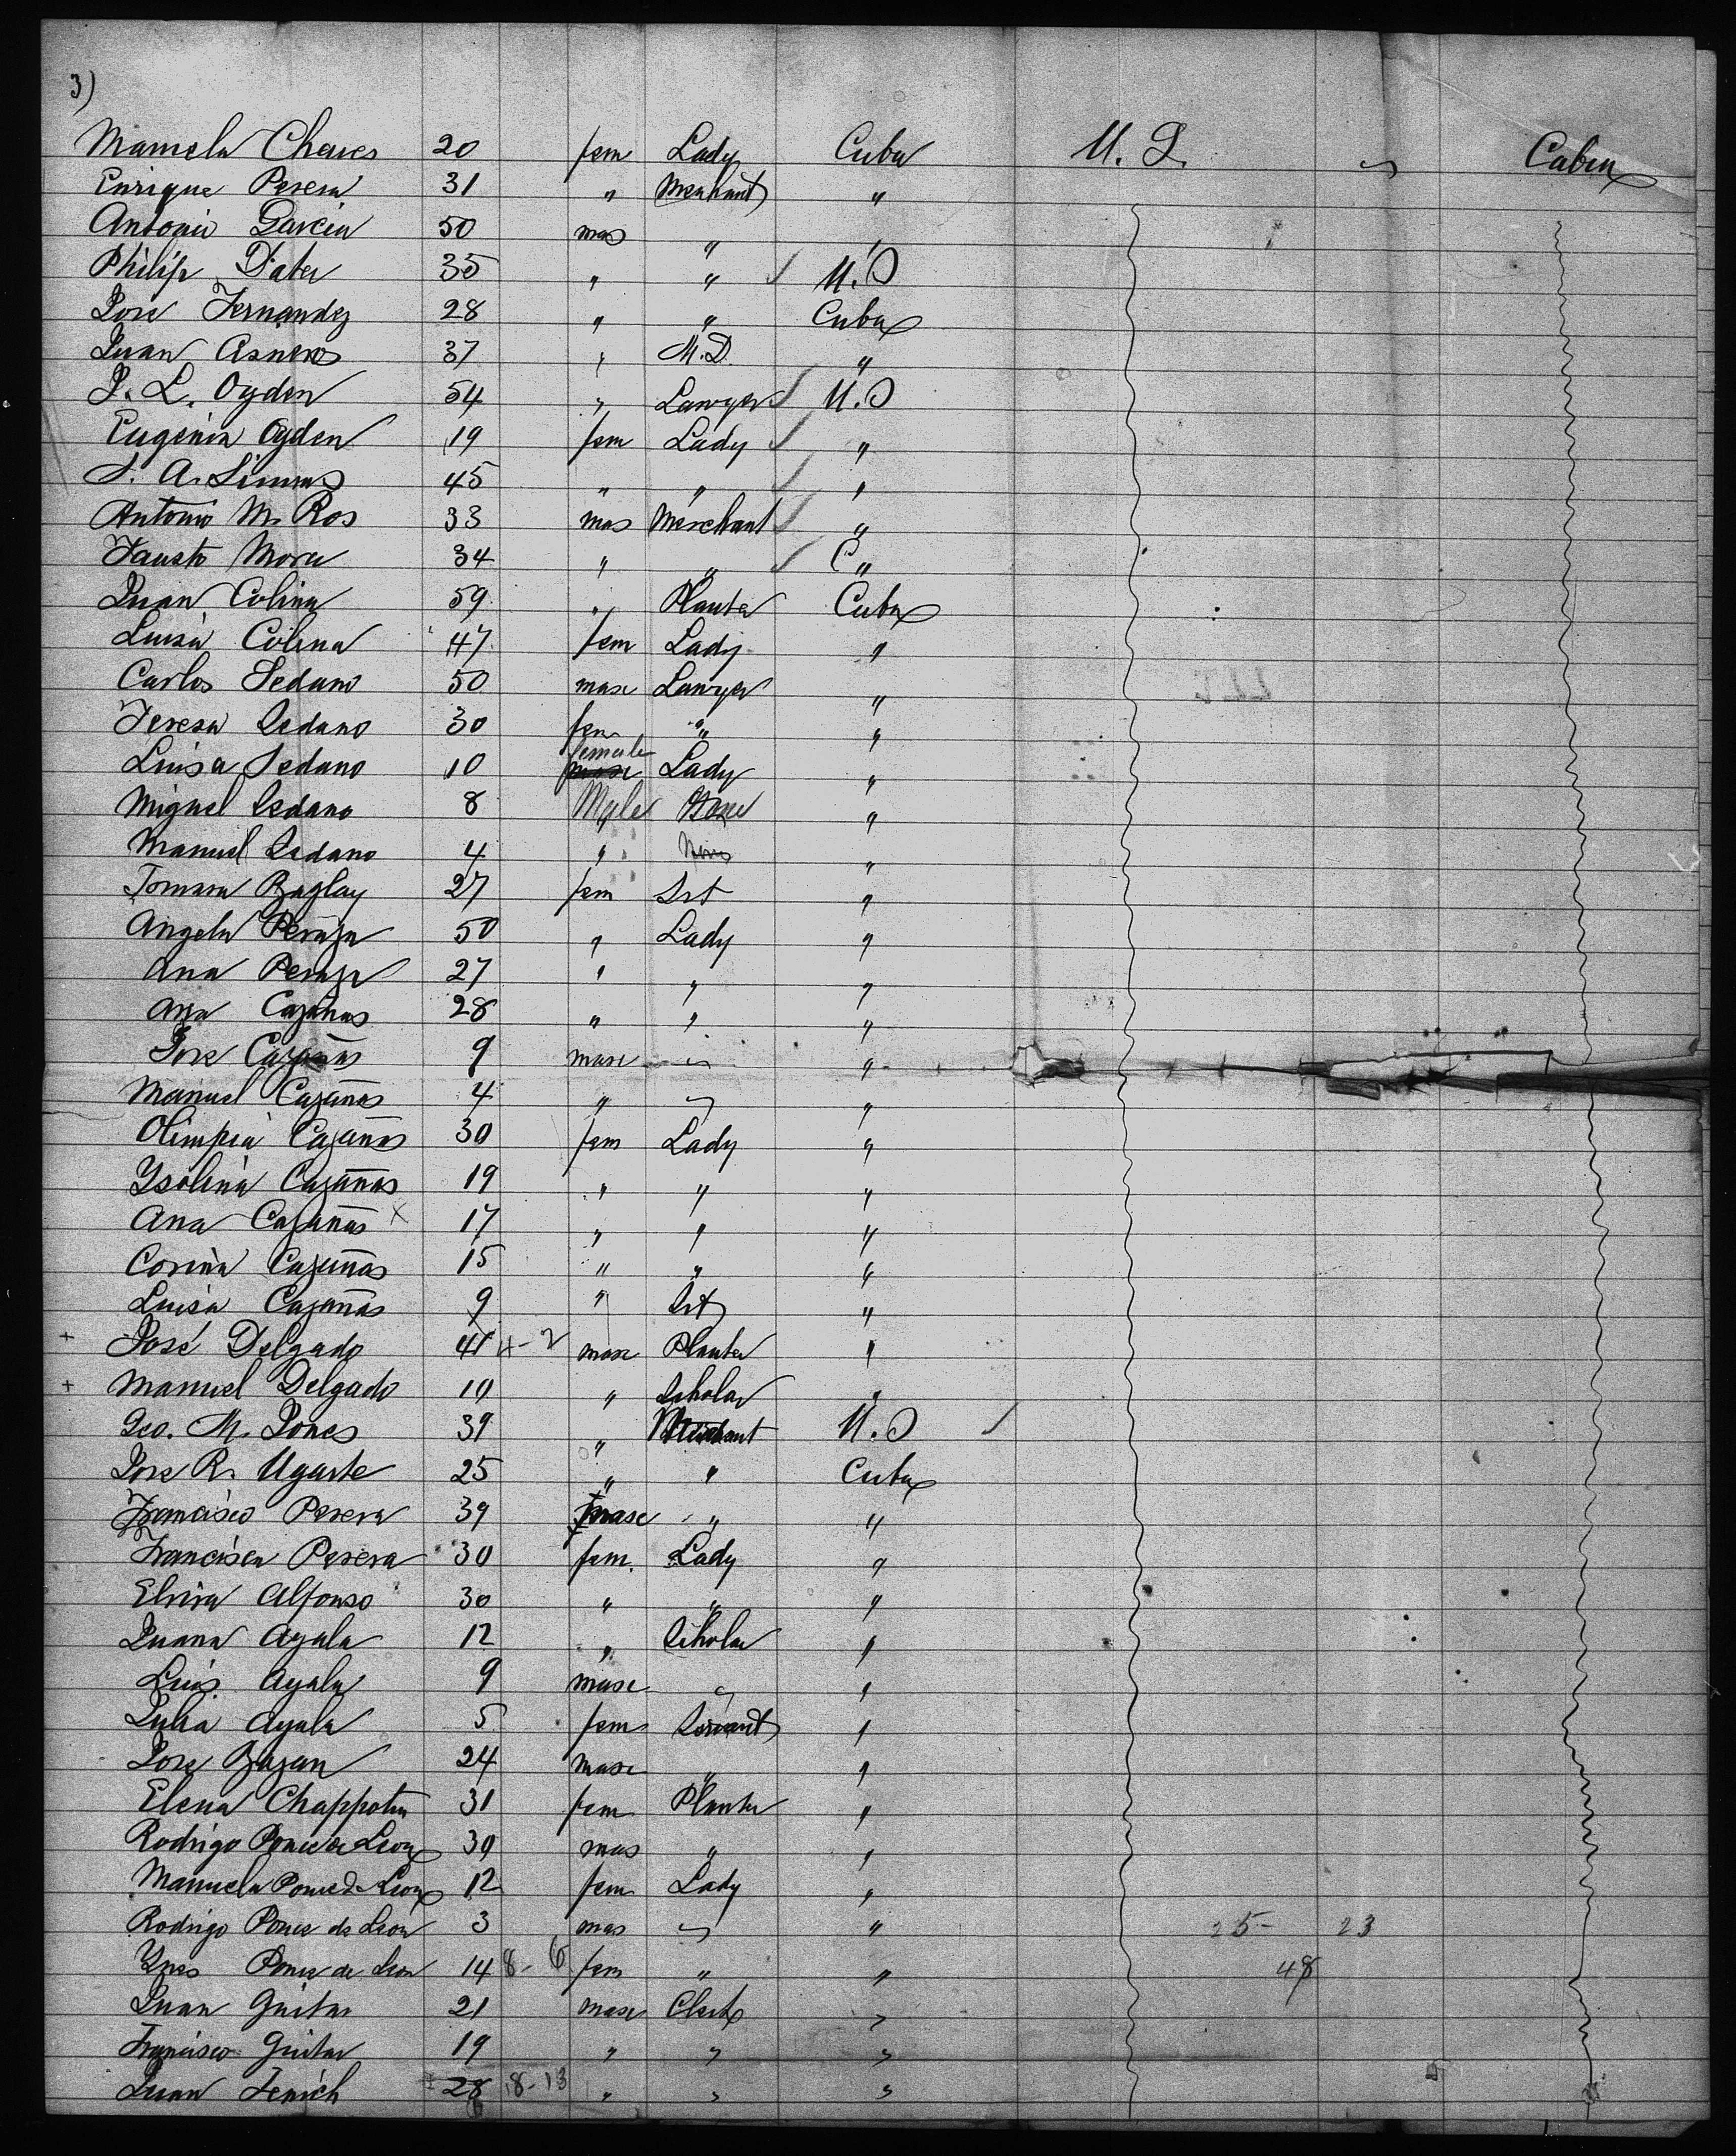 3)
Manuela Chaves 20 fem Lady Cuba U. S. " Cabin
Enrique Perera 31 " Merchant "
Antonio Garcia 50 mas " "
Philip Dater 35 " " ✓ U.S
Jose Fernandez 28 " " Cuba
Juan Asneros 37 " M.D. "
J. L. Ogden 54 " Lawyer ✓ U.S
Eugenia Ogden 19 fem Lady ✓ "
S. A. Simms 45 " " ✓ "
Antonio M. Ros 33 mas Merchant ✓ "
Fausto Mora 34 " " ✓ C "
Juan Colina 59 " Planter Cuba
Luisa Colina 47 fem Lady "
Carlos Sedano 50 masc Lawyer "
Teresa Sedano 30 fem " "
Luisa Sedano 10 female Lady "
Miguel Sedano 8 Male None "
Manuel Sedano 4 " None "
Tomasa Baglay 27 fem Svt "
Angela Peraza 50 " Lady "
Ana Peraza 27 " " "
Ana Cazañas 28 " " "
Jose Cazañas 9 masc " "
Manuel Cazañas 4 " " "
Olimpia Cazañas 30 fem Lady "
Ysolina Cazañas 19 " " "
Ana Cazañas x 17 " " "
Corina Cazañas 15 " " "
Luisa Cazañas 9 " Svt "
+ José Delgado 41 4-2 masc Planter "
+ Manuel Delgado 10 " Scholar "
Geo. M. Jones 39 " Merchant U.S ✓
Jose R. Ugarte 25 " " Cuba
Francisco Perera 39 masc " "
Francisca Perera 30 fem. Lady "
Elvira Alfonso 30 " " "
Juana Ayala 12 " Scholar "
Luis Ayala 9 masc " "
Julia Ayala 5 fem Servant "
Jose Bazan 24 masc " "
Elena Chappotin 31 fem Planter "
Rodrigo Ponce de Leon 39 mas " "
Manuela Ponce de Leon 12 fem Lady "
Rodrigo Ponce de Leon 3 mas " " 25- 23
Ynes Ponce de Leon 14 8- 6 fem " " 48
Juan Guitar 21 masc Clerk "
Francisco Guitar 19 " " "
Juan Ferrich 28 8-13 " " "